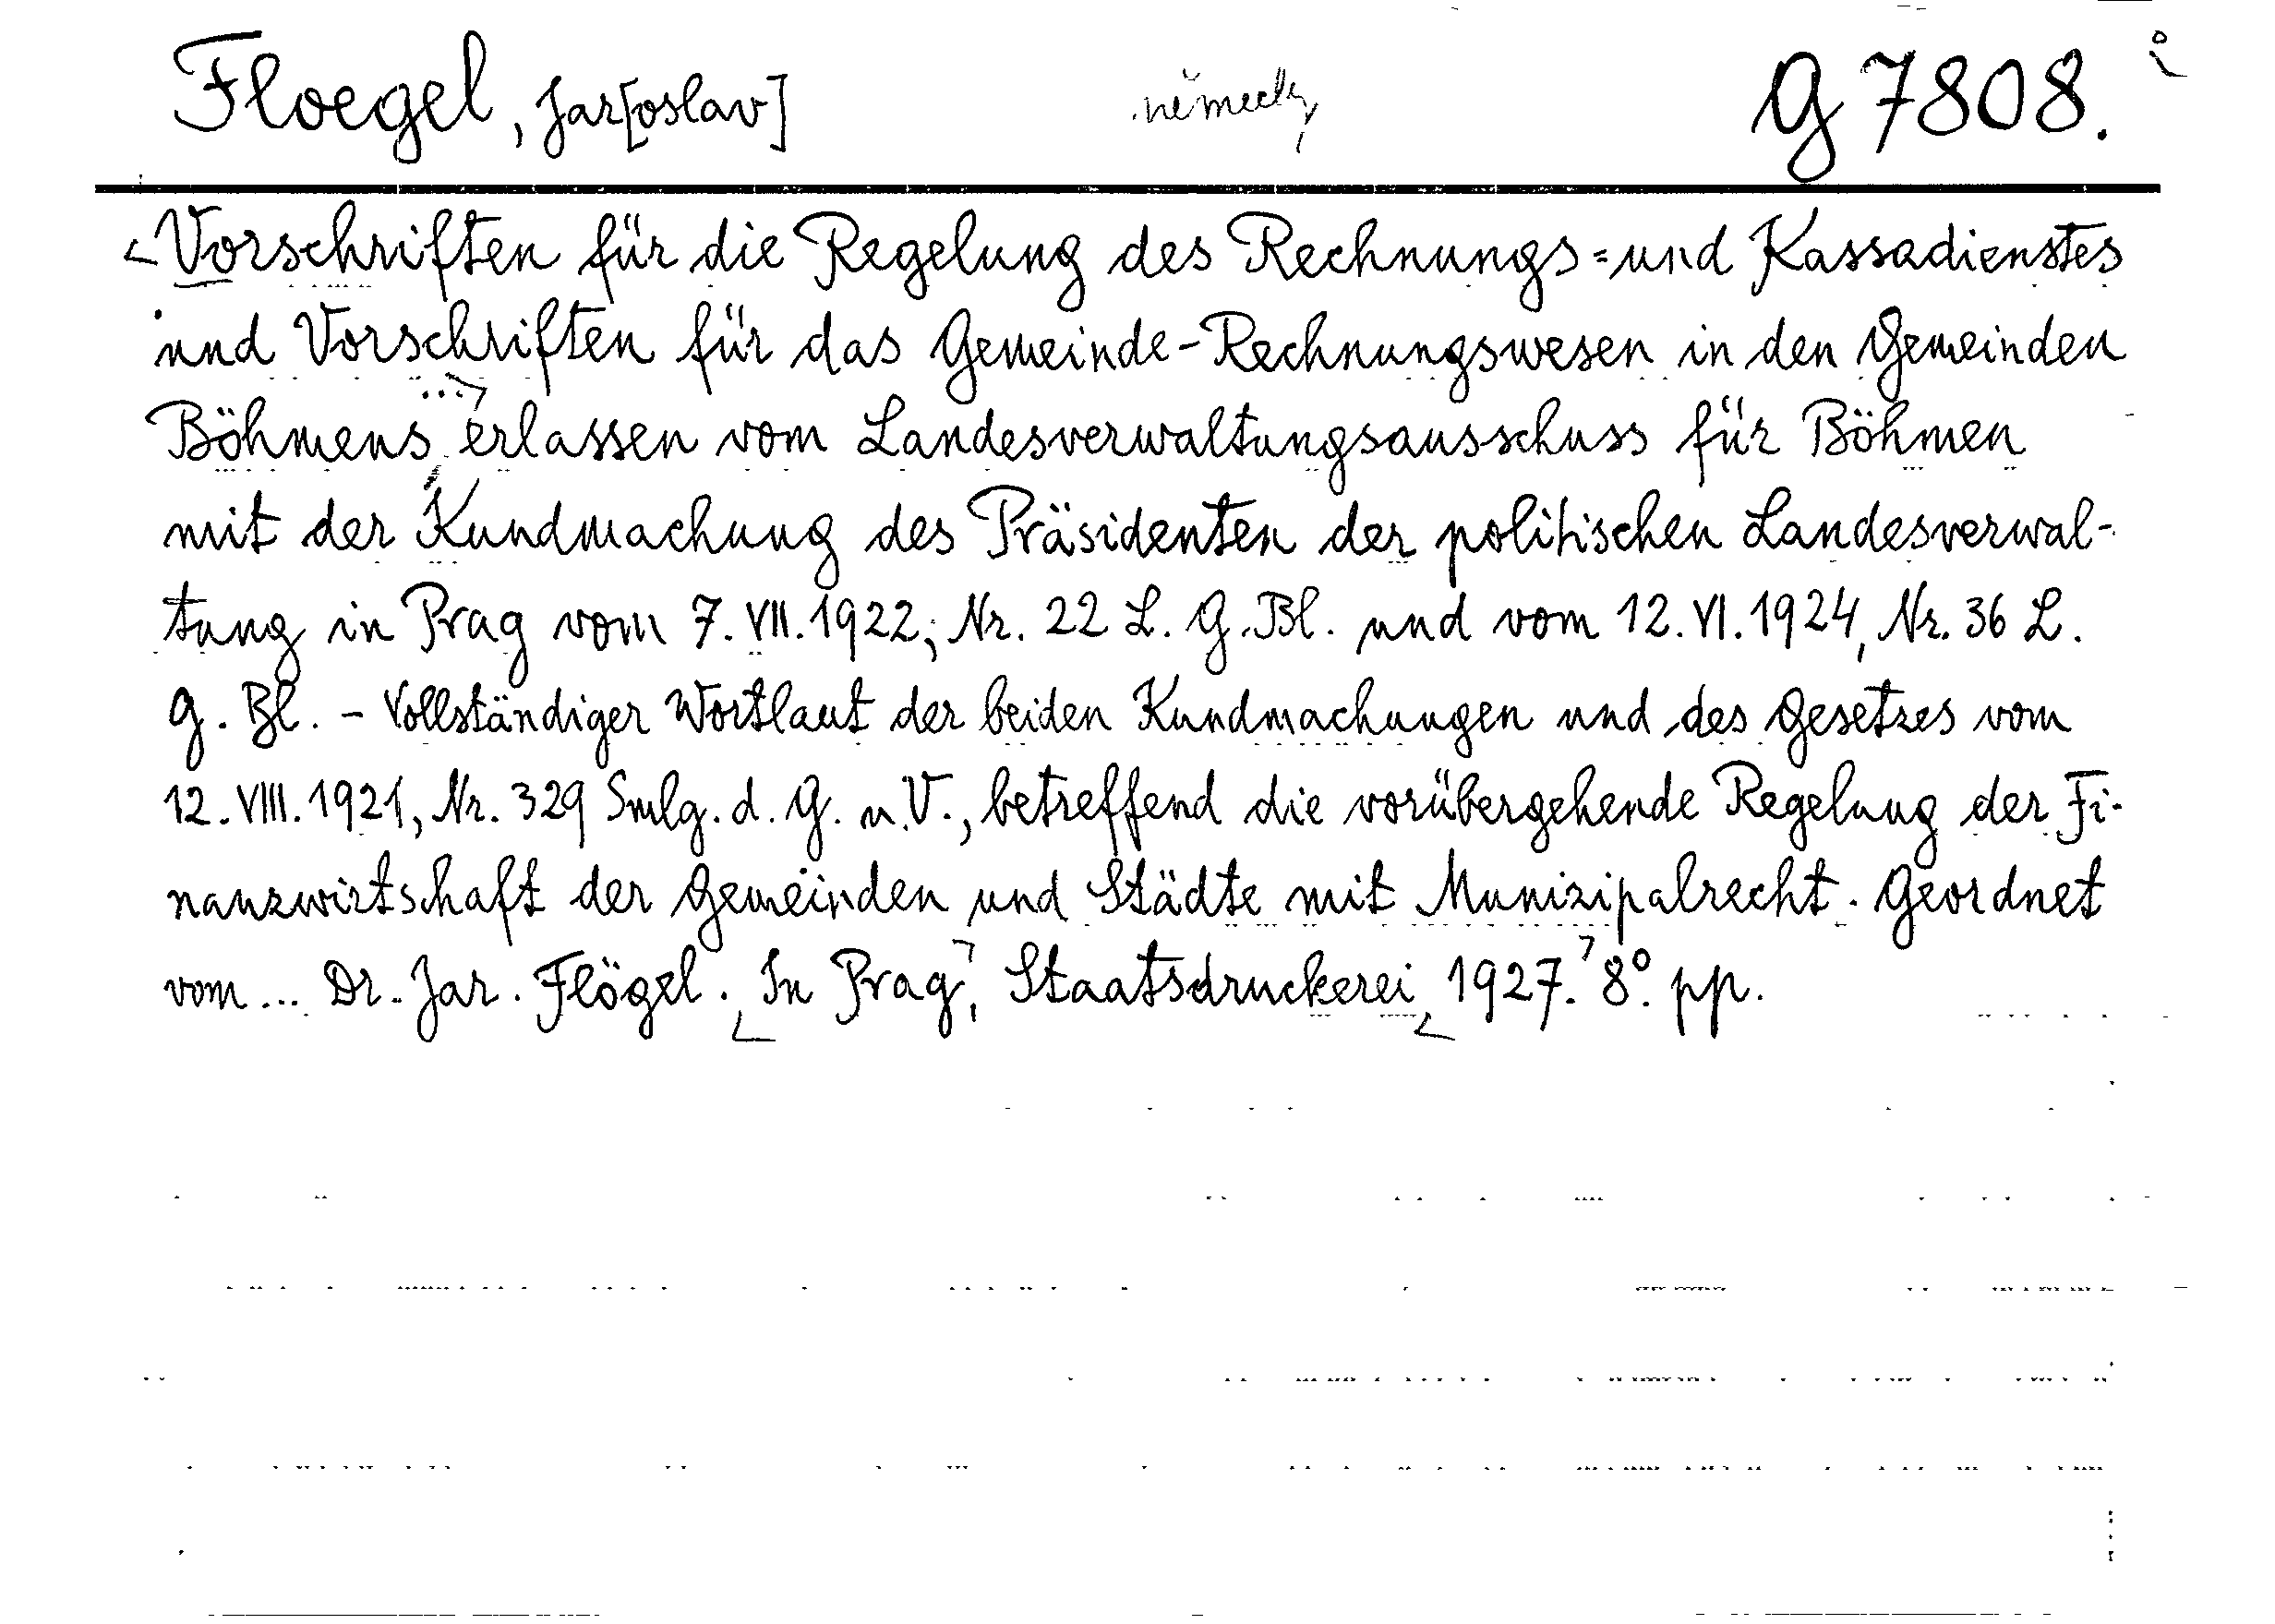 Floegel, Jar[oslav] německy G 7808.
Vorschriften für die Regelung des Rechnungs= und Kassadienstes
und Vorschriften für das Gemeinde-Rechnungswesen in den Gemeinden
Böhmens, ... erlassen vom Landesverwaltungsausschuss für Böhmen
mit der Kundmachung des Präsidenten der politischen Landesverwal-
tung in Prag vom 7. VII. 1922, Nr. 22 L. G. Bl. und vom 12. VI. 1924, Nr. 36 L.
G. Bl. - Vollständiger Wortlaut der beiden Kundmachungen und des Gesetzes vom
12. VIII. 1921, Nr. 329 Smlg. d. G. u. V., betreffend die vorübergehende Regelung der Fi-
nanzwirtschaft der Gemeinden und Städte mit Munizipalrecht. Geordnet
vom ... Dr. Jar. Flögel. In Prag, Staatsdruckerei, 1927. 8°. pp.